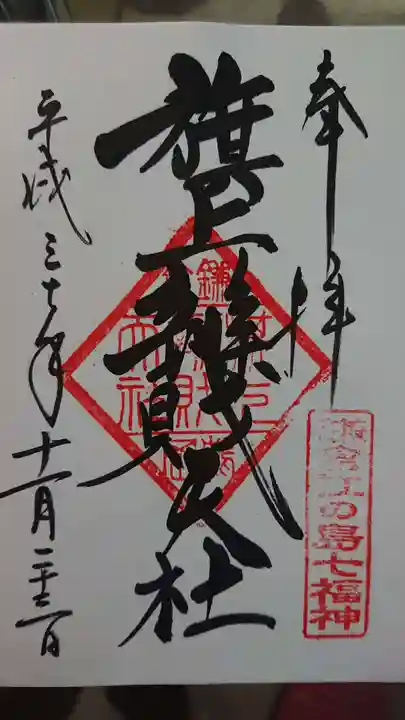 奉拝
鎌倉江の島七福神
旗上辨財天社
平成三十年十一月二十三日